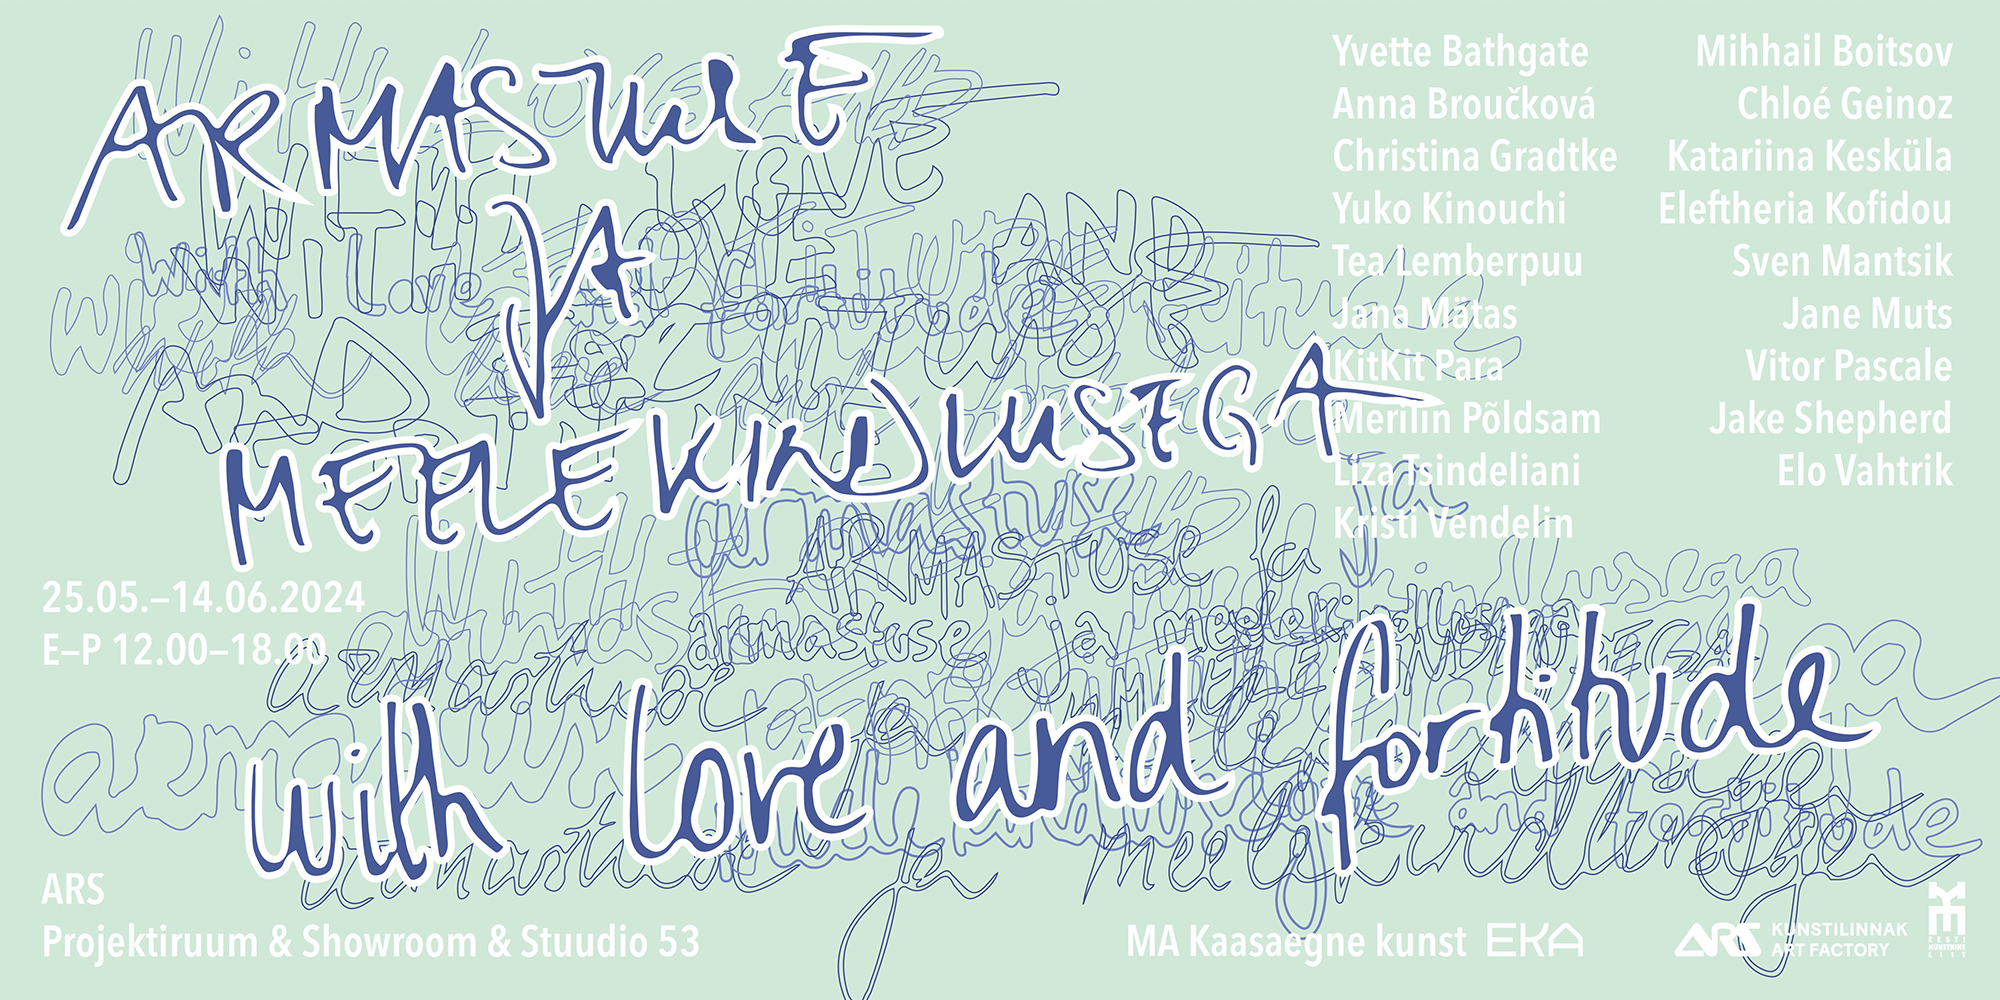 ARMASTUSE
JA
MEELEKINDLUSEGA
with love and fortitude
Yvette Bathgate
Anna Broučková
Christina Gradtke
Yuko Kinouchi
Tea Lemberpuu
Jana Mätas
KitKit Para
Merilin Põldsam
Liza Tsindeliani
Kristi Vendelin
Mihhail Boitsov
Chloé Geinoz
Katariina Kesküla
Eleftheria Kofidou
Sven Mantsik
Jane Muts
Vitor Pascale
Jake Shepherd
Elo Vahtrik
25.05.–14.06.2024
E–P 12.00–18.00
ARS
Projektiruum & Showroom & Stuudio 53
MA Kaasaegne kunst EKA
ARS KUNSTILINNAK
ART FACTORY
EESTI
KUNSTNIKE
LIIT